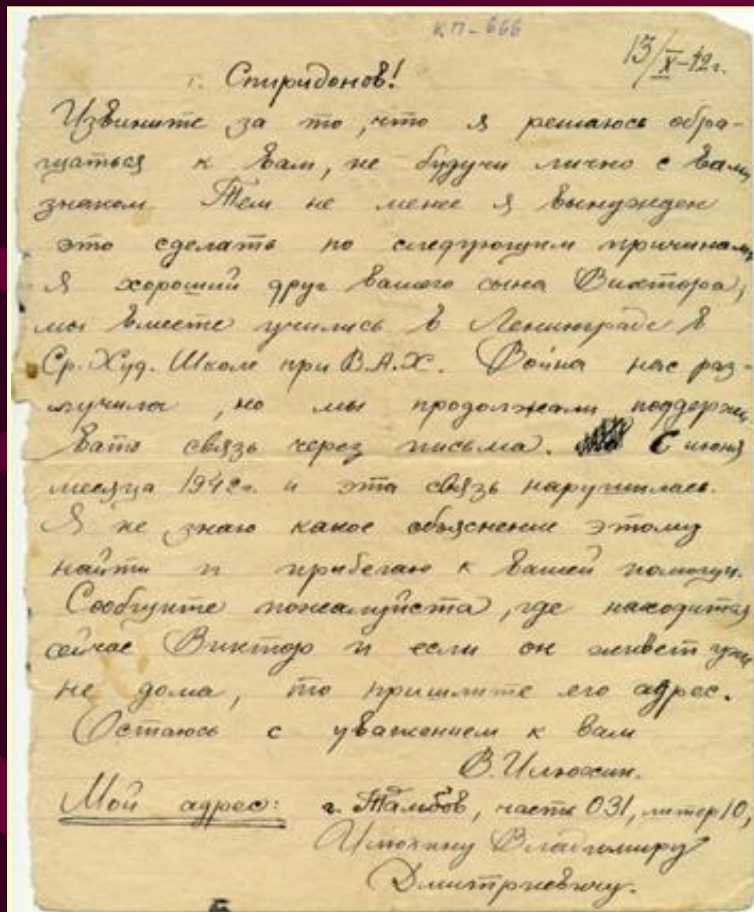 КП-666
13/X-42г.
г. Спиридонов!
Извините за то, что я решаюсь обра-
щаться к Вам, не будучи лично с Вами
знаком. Тем не менее я вынужден
это сделать по следующим причинам,
Я хороший друг вашего сына Виктора,
мы вместе учились в Ленинграде в
Ср. Худ. Школе при В.А.Х. Война нас раз-
лучила, но мы продолжали поддержи
вать связь через письма. С июня
месяца 1942г. и эта связь нарушилась.
Я не знаю какое объяснение этому
найти и прибегаю к вашей помощи.
Сообщите пожалуйста, где находится
сейчас Виктор и если он живет уже
не дома, то пришлите его адрес.
Остаюсь с уважением к вам
В. Илюхин.
Мой адрес: г. Тамбов, часть 031, литер 10,
Илюхину Владимиру
Дмитриевичу.